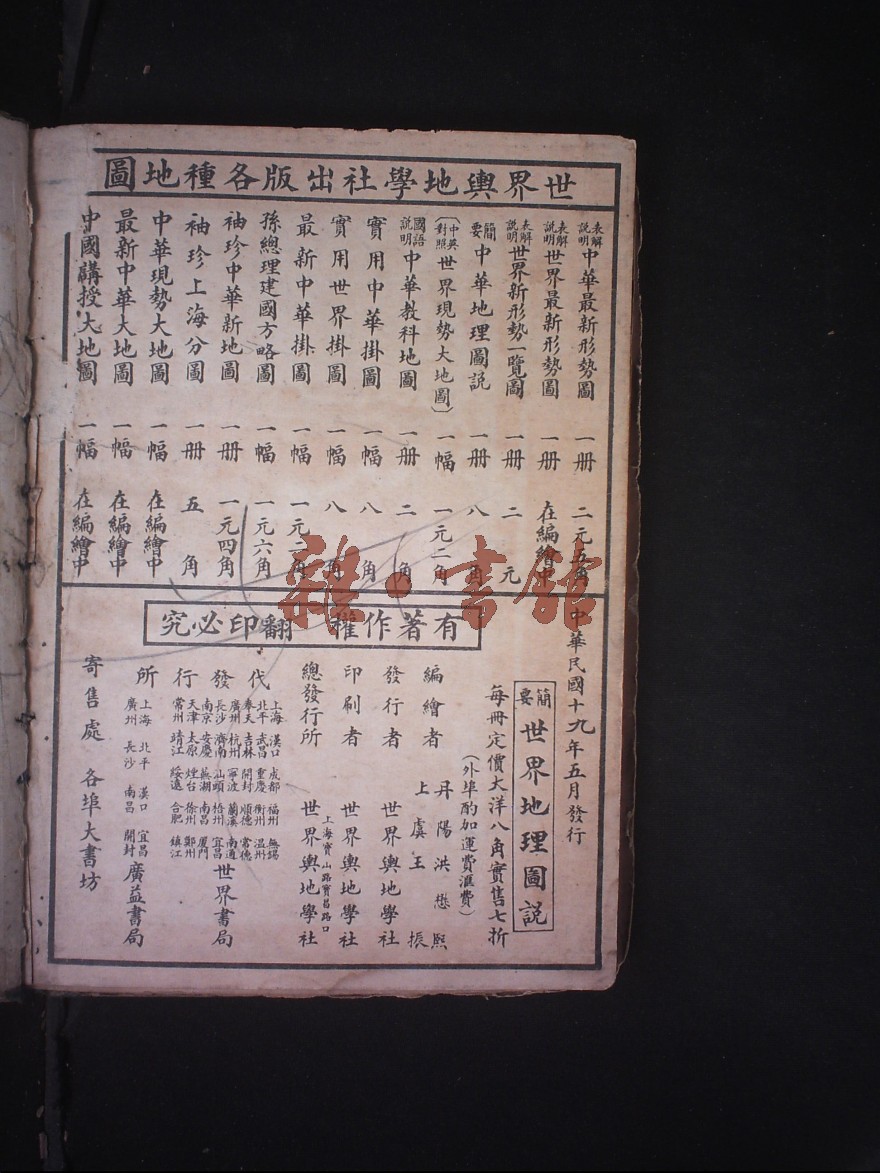 世界輿地學社出版各種地圖
表解說明中華最新形勢圖 一册 二元五角
表解說明世界最新形勢圖 一册 在編繪中
表解說明世界新形勢一覽圖 一册 二元
簡要中華地理圖説 一册 八角
(中英對照世界現勢大地圖) 一幅 一元二角
國語說明中華教科地圖 一册 二角
實用中華掛圖 一幅 八角
實用世界掛圖 一幅 八角
最新中華掛圖 一幅 一元二角
孫總理建國方略圖 一幅 一元六角
袖珍中華新地圖 一册 一元四角
袖珍上海分圖 一册 五角
中華現勢大地圖 一幅 在編繪中
最新中華大地圖 一幅 在編繪中
中國講授大地圖 一幅 在編繪中
有著作權 翻印必究
中華民國十九年五月發行
簡要世界地理圖説
每冊定價大洋八角實售七折
(外埠酌加運費滙費)
編繪者 丹陽洪懋熙
上虞王振
發行者 世界輿地學社
印刷者 世界輿地學社
上海寶山路寶昌路口
總發行所 世界輿地學社
代發行所
上海 漢口 成都 福州 無錫
北平 武昌 重慶 衢州 溫州
奉天 吉林 開封 順德 常德
廣州 杭州 寧波 蘭溪 南通
長沙 濟南 汕頭 梧州 宜昌
南京 安慶 蕪湖 南昌 厦門
天津 太原 煙台 徐州 鄭州
常州 靖江 綏遠 合肥 鎮江
世界書局
上海 北平 漢口 宜昌
廣州 長沙 南昌 開封
廣益書局
寄售處 各埠大書坊
雜·書館